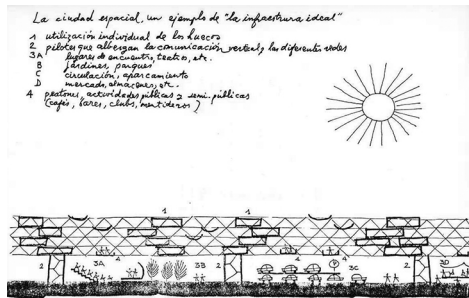 La ciudad espacial, un ejemplo de "la infraestrura ideal"
1 utilización individual de los huecos
2 pilotes que albergan la comunicación vertical y las diferentes redes
3A lugares de encuentro, teatros, etc.
B jardines, parques
C circulación, aparcamiento
D mercado, almacenes, etc.
4 peatones, actividades públicas y semi-públicas
(cafés, bares, clubs, mentideros)
1 1
4 4 4
2 3A 2 3B 2 P 3C 2 3D